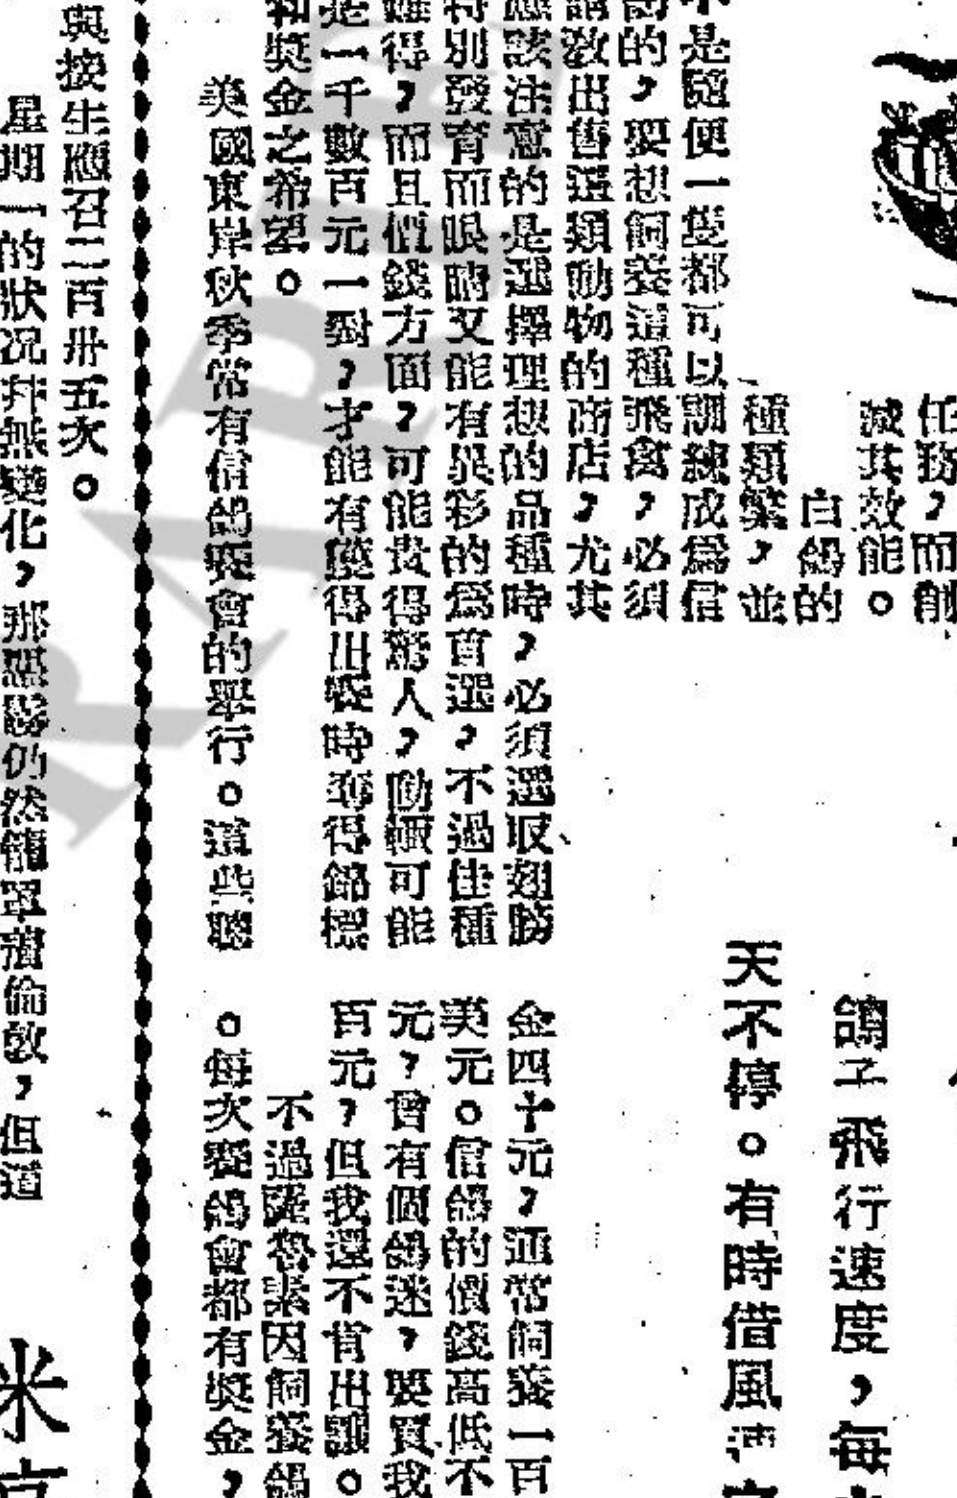 任務，而削
滅其效能。
白鴿的
種類繁，並
不是隨便一隻都可以訓練成爲信
的，要想飼養這種飛禽，必須
請教出售這類動物的商店，尤其
應該注意的是選擇理想的品種時，必須選取翅膀
特別發育而眼睛又能有異彩的爲首選，不過佳種
難得，而且價錢方面，可能貴得驚人，動輒可能
是一千數百元一對，才能有獲得出賽時奪得錦標
和獎金之希望。
美國東岸秋季常有信鴿賽會的舉行。這些聰
鴿子飛行速度，每
天不停。有時借風
金四十元，通常飼養一百
美元。信鴿的價錢高低不
元，曾有個鴿迷，要買我
百元，但我還不肯出讓。
不過薩魯素因飼養鴿
。每次賽鴿會都有獎金，
與接生應召二百卅五次。
星期一的狀況并無變化，那黑霧仍然籠罩着倫敦，但這
米